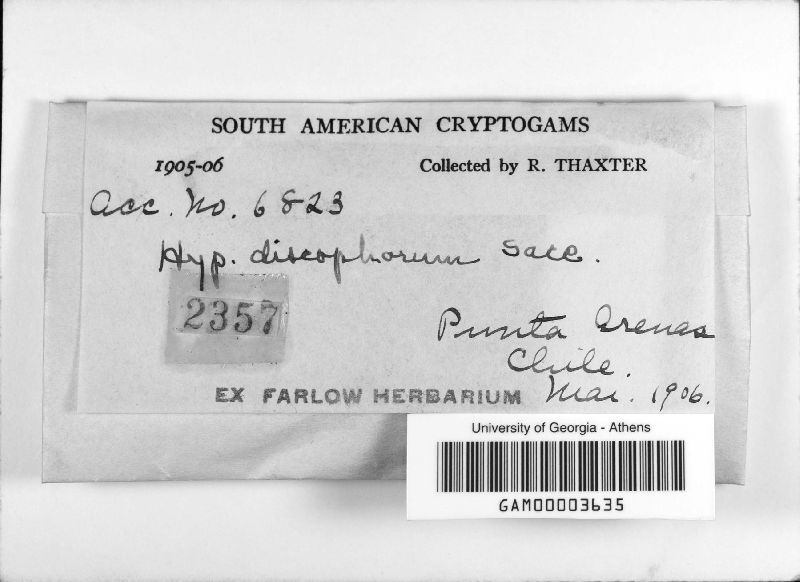 SOUTH AMERICAN CRYPTOGAMS
1905-06 Collected by R. THAXTER
Acc. No. 6823
Hyp. discophorum Sacc.
2357
Punta Arenas
Chile.
Mar. 1906.
EX FARLOW HERBARIUM
University of Georgia - Athens
GAM00003635